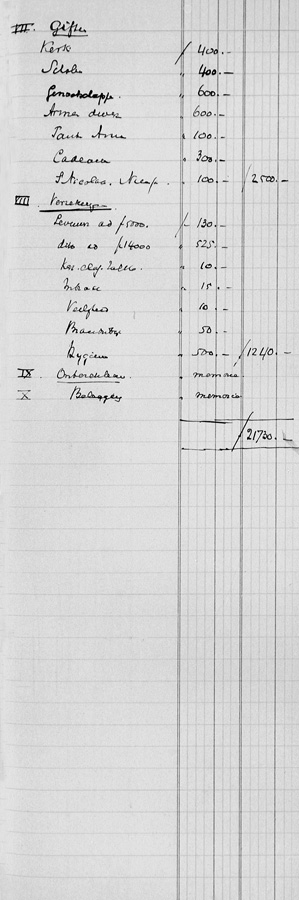 VII. Giften
Kerk ƒ 400.-
Scholen " 400.-
Genootschappen " 600.-
Armen divers " 600.-
Tante Anna " 100.-
Cadeaux " 300.-
S. Nicolaas, Nieuwj. " 100.- ƒ 2500.-
VIII. Verzekeringen
Levenn ad ƒ 5000. ƒ 130.-
dito ad ƒ 14000 " 525.-
" 10.-
Inbraak " 15.-
Veiligheid " 10.-
Brandverz. " 50.-
Hygiene " 500.- ƒ 1240.-
IX " memorie
X Belegging " memorie
ƒ 21730.-